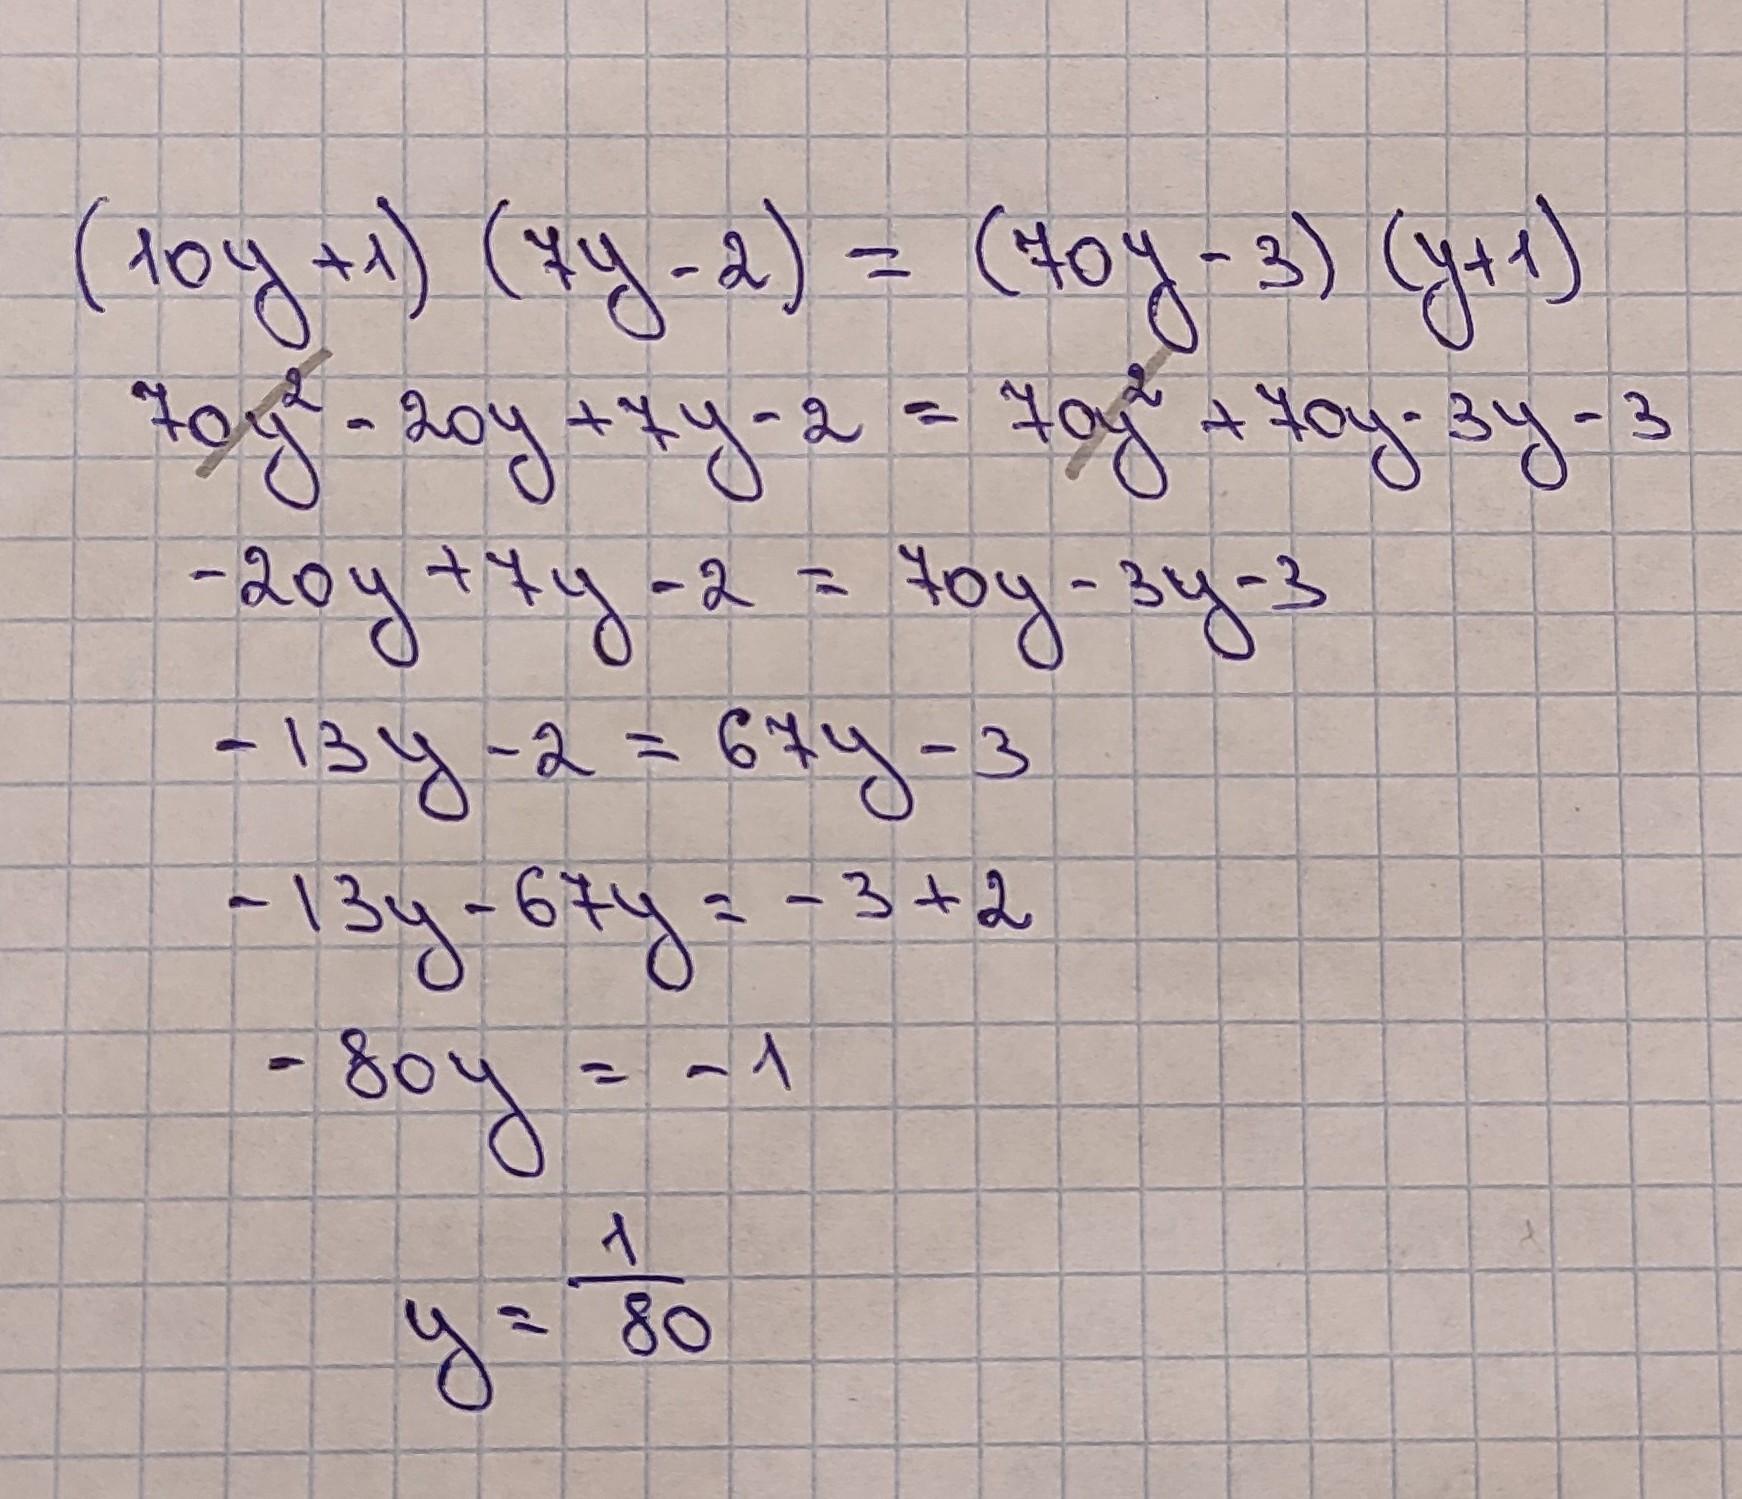 (10y+1) (7y-2) = (70y-3) (y+1)
70y² - 20y + 7y - 2 = 70y² + 70y - 3y - 3
-20y + 7y - 2 = 70y - 3y - 3
-13y - 2 = 67y - 3
-13y - 67y = -3 + 2
-80y = -1
y = 1/80